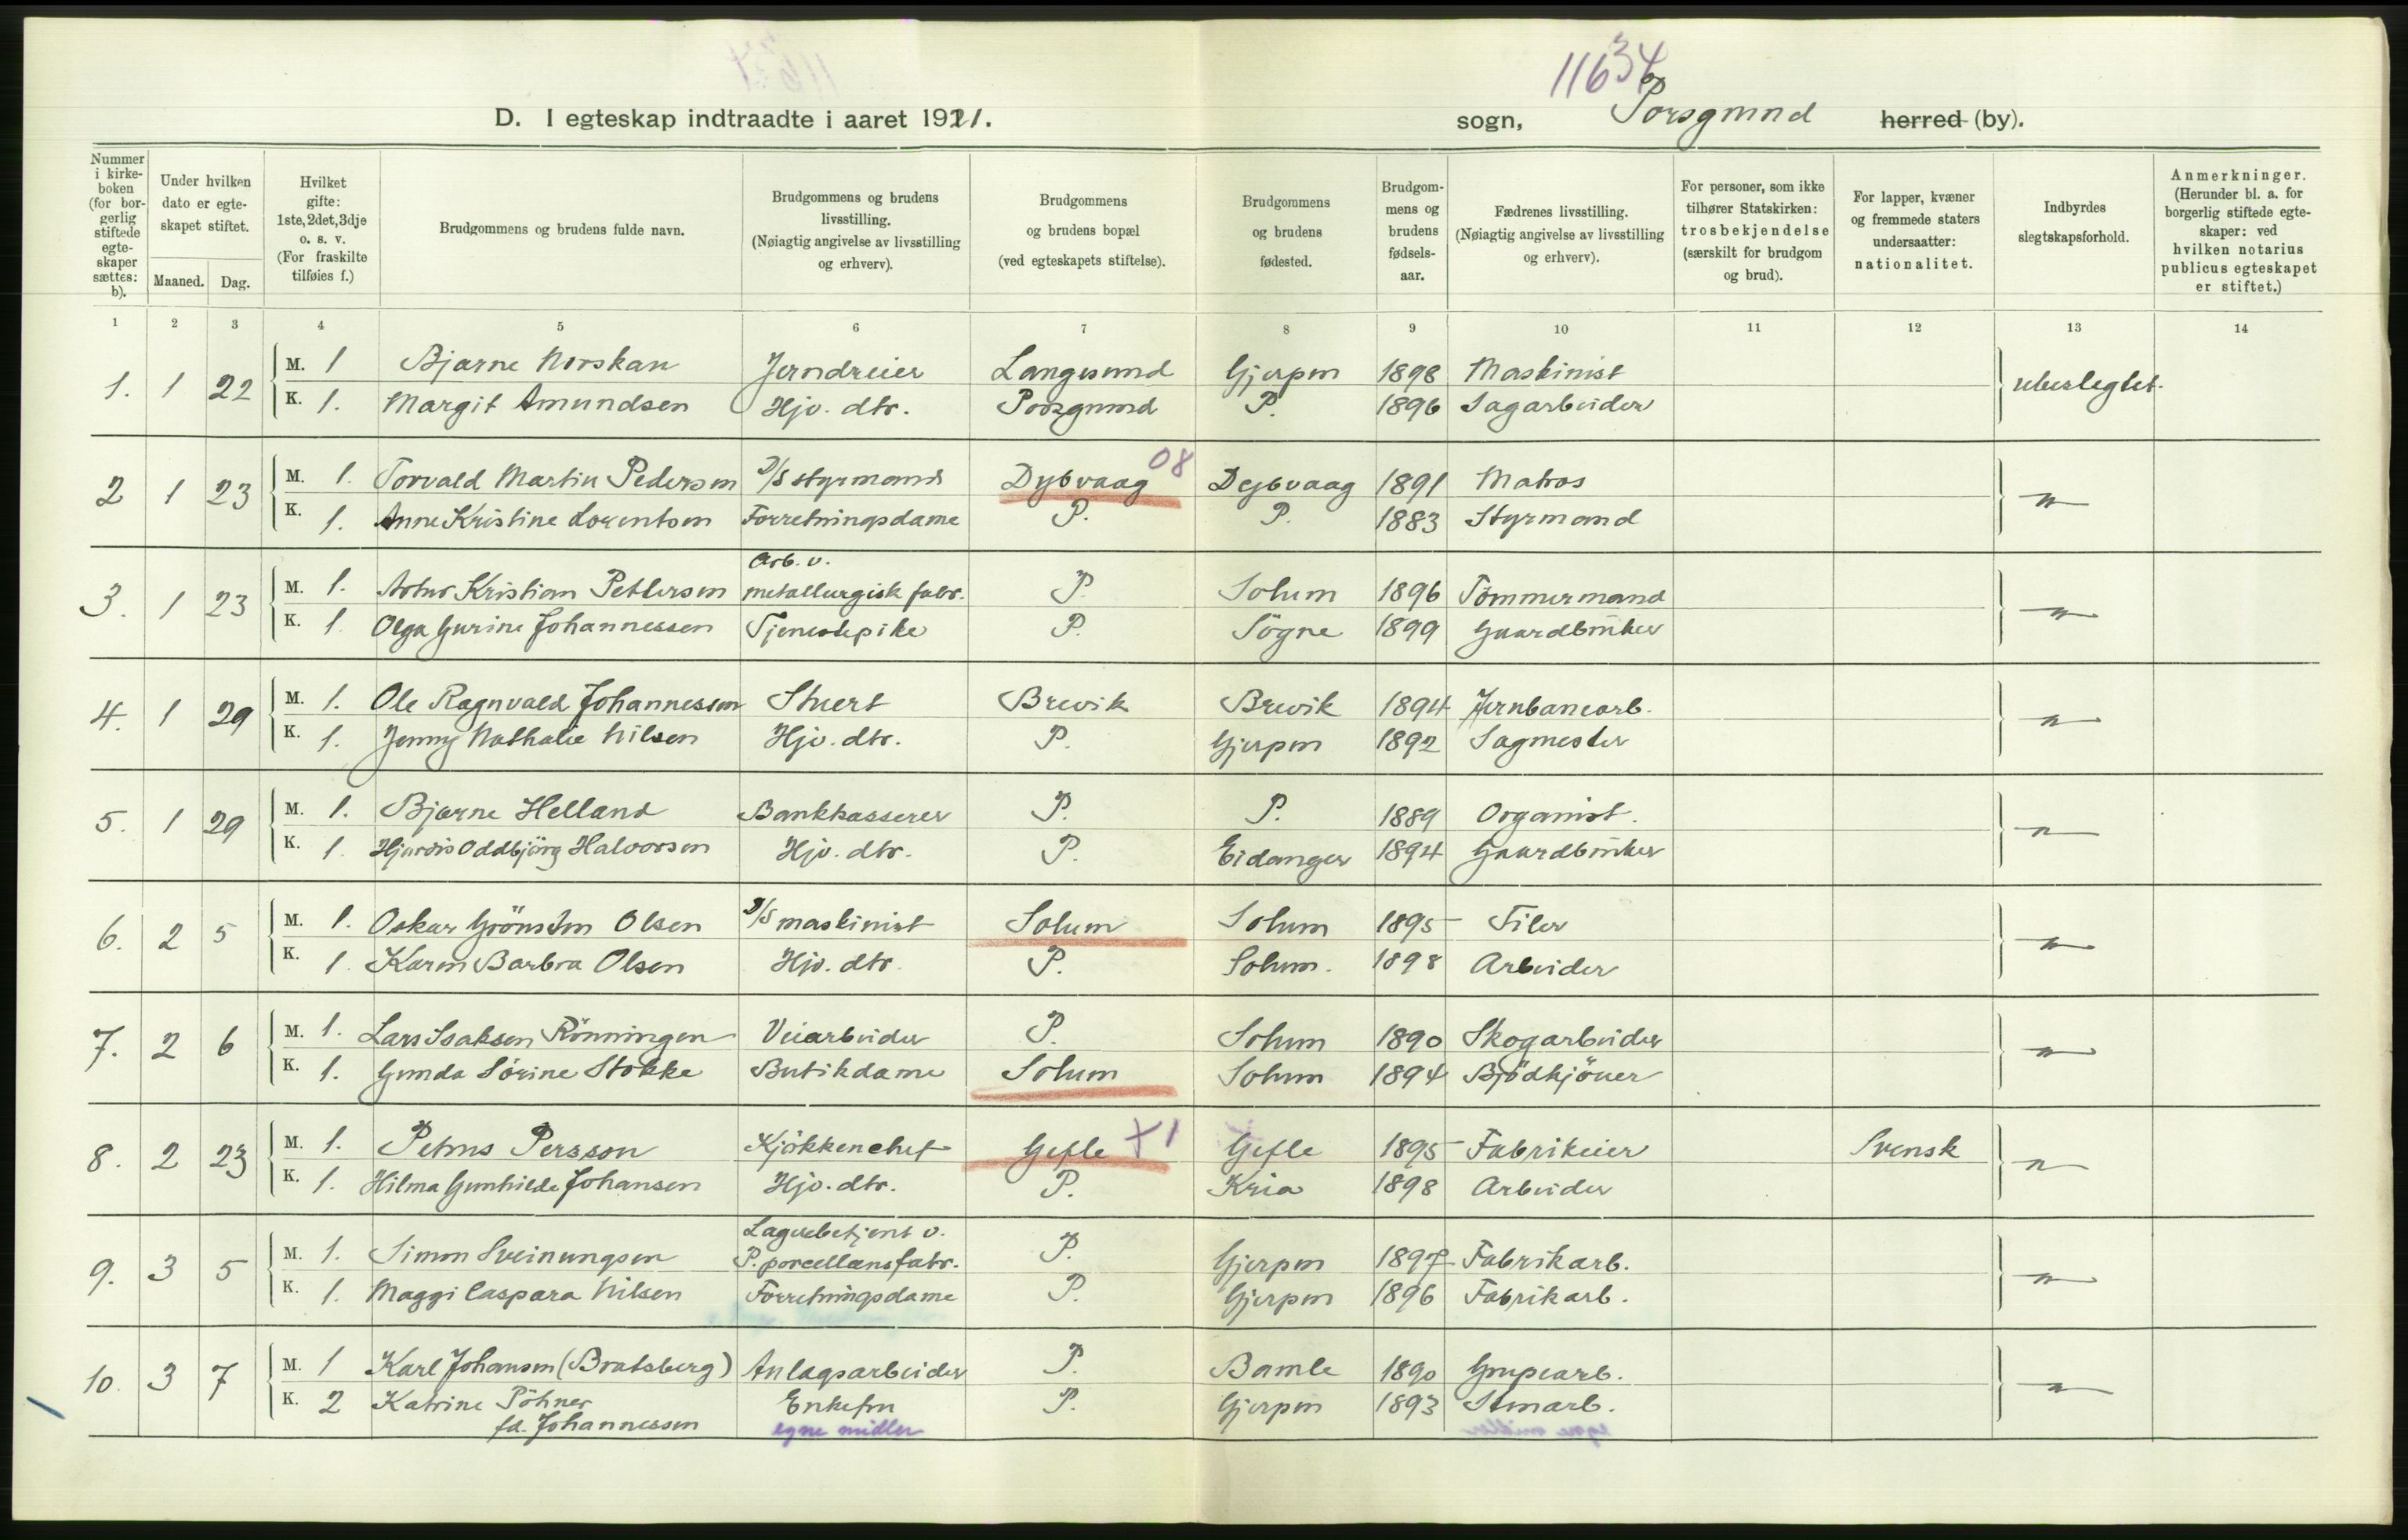 11634
D. I egteskap indtraadte i aaret 1921. sogn, Porsgrund herred (by).
Nummer i kirkeboken (for borgerlig stiftede egteskaper sættes: b).
Under hvilken dato er egteskapet stiftet.
Maaned. Dag.
Hvilket gifte: 1ste, 2det, 3dje o. s. v. (For fraskilte tilføies f.)
Brudgommens og brudens fulde navn.
Brudgommens og brudens livsstilling. (Nøiagtig angivelse av livsstilling og erhverv).
Brudgommens og brudens bopæl (ved egteskapets stiftelse).
Brudgommens og brudens fødested.
Brudgommens og brudens fødselsaar.
Fædrenes livsstilling. (Nøiagtig angivelse av livsstilling og erhverv).
For personer, som ikke tilhører Statskirken: trosbekjendelse (særskilt for brudgom og brud).
For lapper, kvæner og fremmede staters undersaatter: nationalitet.
Indbyrdes slegtskapsforhold.
Anmerkninger. (Herunder bl. a. for borgerlig stiftede egteskaper: ved hvilken notarius publicus egteskapet er stiftet.)
1 2 3 4 5 6 7 8 9 10 11 12 13 14
1. 1 22 M. 1 Bjarne Norskau Jerndreier Langesund Gjerpen 1898 Maskinist ubeslegtet.
K. 1. Margit Amundsen Hjv. dtr. Porsgrund P. 1896 Sagarbeider
2 1 23 M. 1. Torvald Martin Pedersen D/S styrmand Dybvaag 08 Dybvaag 1891 Matros — " —
K. 1. Anne Kristine Lorentsen Forretningsdame P. P. 1883 Styrmand
Arb. v.
3. 1 23 M. 1. Artur Kristian Pettersen metallurgisk fabr. P. Solum 1896 Tömmermand — " —
K. 1 Olga Gurine Johannessen Tjenestepike P. Sögne 1899 Gaardbruker
4. 1 29 M. 1. Ole Ragnvald Johannessen Stuert Brevik Brevik 1894 Jernbanearb. — " —
K. 1. Jenny Nathalie Nilsen Hjv. dtr. P. Gjerpen 1892 Sagmester
5. 1 29 M. 1. Bjarne Helland Bankkasserer P. P. 1889 Organist. — " —
K. 1. Hjørdis Oddbjörg Halvorsen Hjv. dtr. P. Eidanger 1894 Gaardbruker
6. 2 5 M. 1. Oskar Grönsten Olsen D/S maskinist Solum Solum 1895 Filer — " —
K. 1. Karen Barbra Olsen Hjv. dtr. P. Solum. 1898 Arbeider
7. 2 6 M. 1. Lars Isaksen Rönningen Veiarbeider P. Solum 1890 Skogarbeider — " —
K. 1. Gunda Sörine Stokke Butikdame Solum Solum 1894 Bjödkjöner
8. 2 23 M. 1. Petrus Persson Kjökkenchef Gefle X1 Gefle 1895 Fabrikeier Svensk — " —
K. 1. Hilma Gunhilde Johansen Hjv. dtr. P. Kria 1898 Arbeider
Lagerbetjent v.
9. 3 5 M. 1. Simon Sveinungsen P. porcellænsfabr. P. Gjerpen 1897 Fabrikarb. — " —
K. 1. Maggi Caspara Nilsen Forretningsdame P. Gjerpen 1896 Fabrikarb.
10. 3 7 M. 1 Karl Johansen (Bratsberg) Anlagsarbeider P. Bamle 1890 Grupearb. — " —
K. 2 Katrine Pöhner Enkefru P. Gjerpen 1893 Stenarb.
fd. Johannessen egne midler